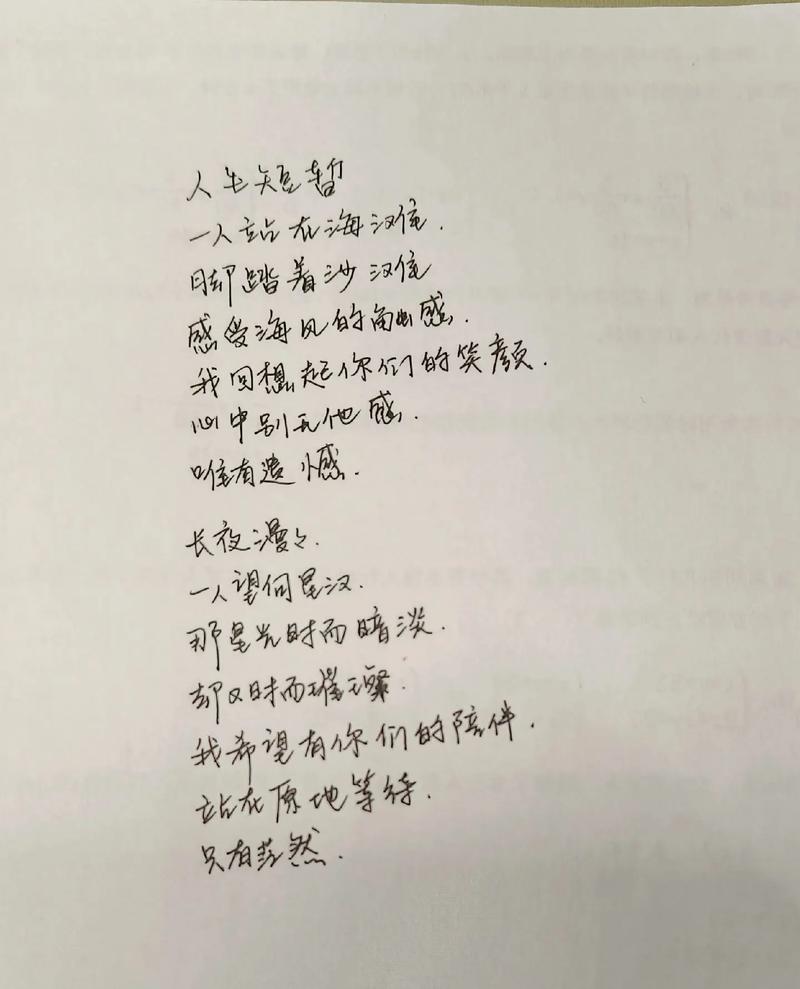 人生短暂
一人站在海汉位.
脚踏着沙汉位
感受海风的触感.
我回想起你们的笑颜.
心中别无他感.
唯有遗憾.
长夜漫々.
一人望向星汉.
那星光时而暗淡.
却又时而璀璨.
我希望有你们的陪伴.
站在原地等待.
只有茫然.